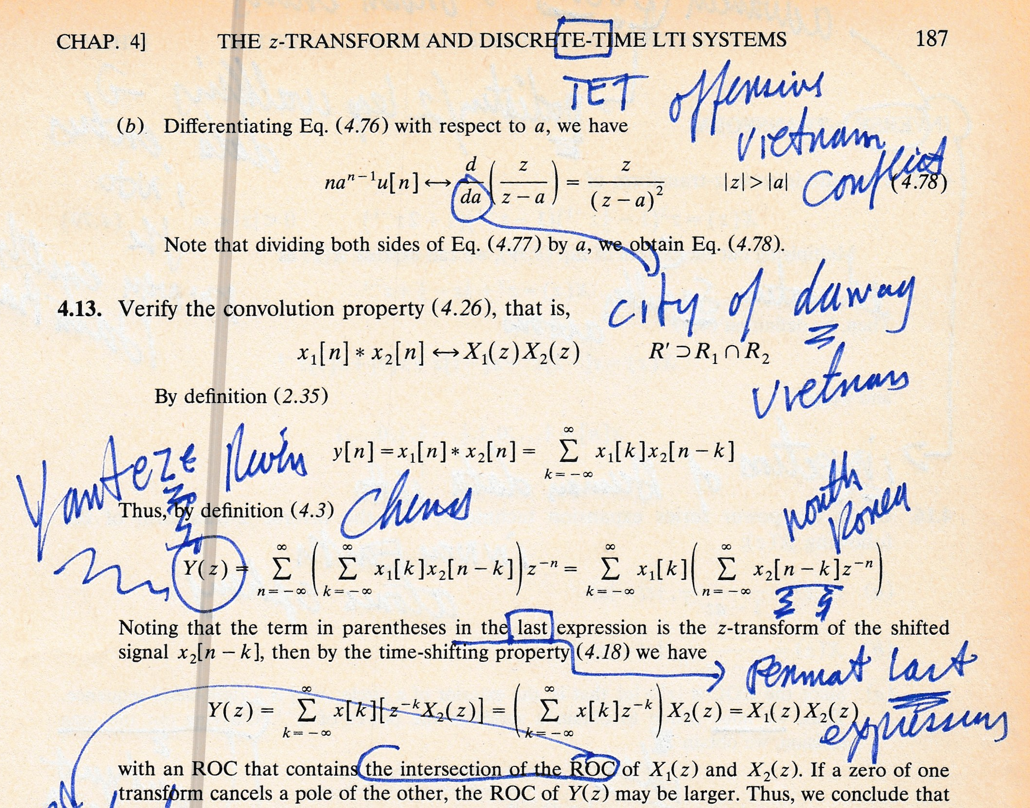 CHAP. 4] THE z-TRANSFORM AND DISCRETE-TIME LTI SYSTEMS 187
TET offensive
(b) Differentiating Eq. (4.76) with respect to a, we have
Vietnam
Conflict
na^{n−1}u[n] ↔ d/da (z/(z−a)) = z/(z−a)^2 |z|>|a| (4.78)
Note that dividing both sides of Eq. (4.77) by a, we obtain Eq. (4.78).
city of danang
4.13. Verify the convolution property (4.26), that is,
x_1[n] * x_2[n] ↔ X_1(z)X_2(z) R' ⊃ R_1 ∩ R_2
Vietnam
By definition (2.35)
y[n] = x_1[n] * x_2[n] = ∑_{k=−∞}^{∞} x_1[k]x_2[n−k]
Yanteze River
China
north
Korea
Thus, by definition (4.3)
Y(z) = ∑_{n=−∞}^{∞} (∑_{k=−∞}^{∞} x_1[k]x_2[n−k])z^{−n} = ∑_{k=−∞}^{∞} x_1[k](∑_{n=−∞}^{∞} x_2[n−k]z^{−n})
Noting that the term in parentheses in the last expression is the z-transform of the shifted
signal x_2[n−k], then by the time-shifting property (4.18) we have
Fermat last
expression
Y(z) = ∑_{k=−∞}^{∞} x[k][z^{−k}X_2(z)] = (∑_{k=−∞}^{∞} x[k]z^{−k})X_2(z) = X_1(z)X_2(z)
with an ROC that contains the intersection of the ROC of X_1(z) and X_2(z). If a zero of one
transform cancels a pole of the other, the ROC of Y(z) may be larger. Thus, we conclude that